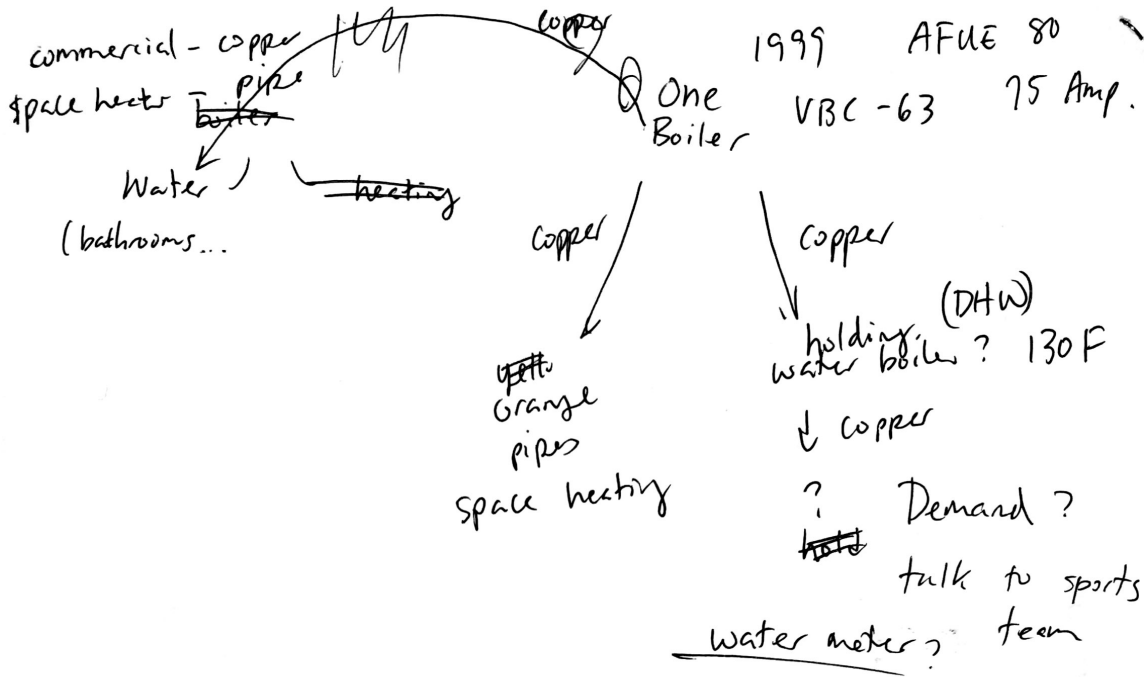 commercial - copper pipe
space heater - boiler
Water
(bathrooms...
heating
copper
One
Boiler
1999 AFUE 80
VBC-63 75 Amp.
copper
orange
pipes
space heating
copper
holding. (DHW)
water boiler? 130F
copper
?
hold
Demand?
talk to sports
team
water meter?